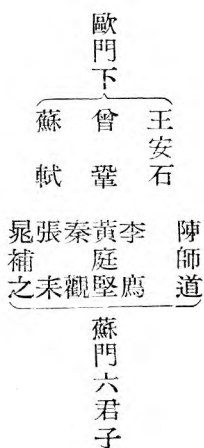 歐門下
王安石
曾鞏
蘇軾
陳師道
李廌
黃庭堅
秦觀
張耒
晁補之
蘇門六君子